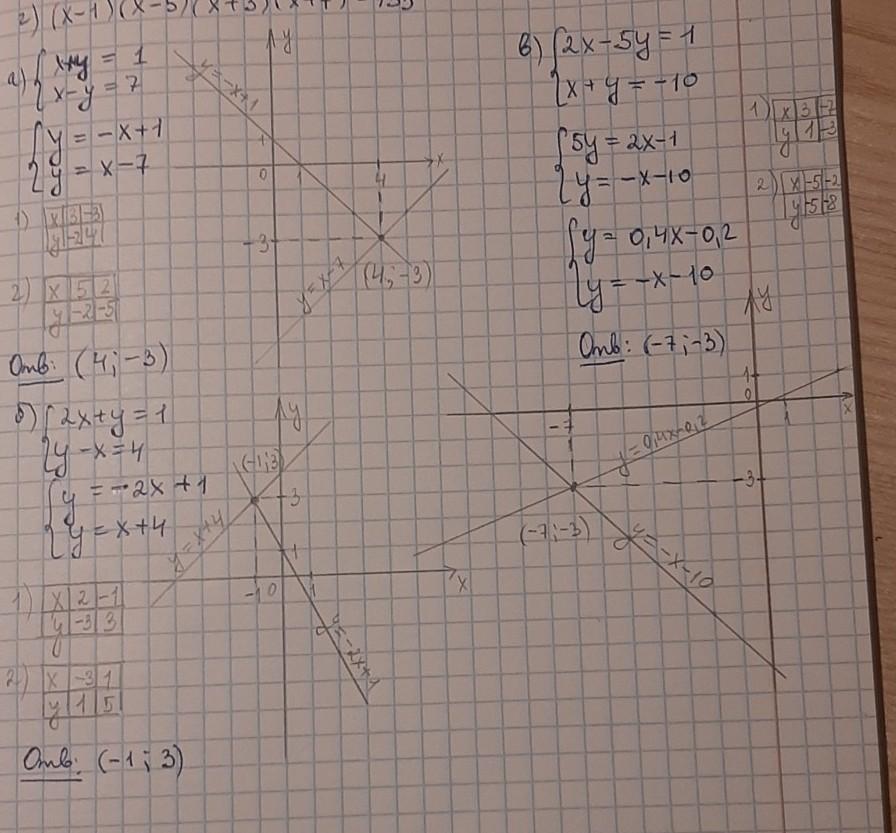 2) (x-1)(x-5)(x+3)(x+7)
а) { x+y = 1
x-y = 7
{ y = -x+1
y = x-7
1) x 3 -3
y -2 4
2) x 5 2
y -2 -5
Отв: (4; -3)
y
y = -x+1
1
x
0 1 4
-3
(4; -3)
y = x-7
б) { 2x+y = 1
y-x = 4
{ y = -2x+1
y = x+4
1) x 2 -1
y -3 3
2) x -3 1
y 1 5
Отв: (-1; 3)
y
(-1; 3)
3
y = x+4
1
-1 0 1 x
y = -2x+1
в) { 2x-5y = 1
x+y = -10
{ 5y = 2x-1
y = -x-10
{ y = 0,4x-0,2
y = -x-10
1) x 3 -7
y 1 -3
2) x -5 -2
y -5 -8
Отв: (-7; -3)
y
1
0
-7 1 x
y = 0,4x-0,2
-3
(-7; -3)
y = -x-10